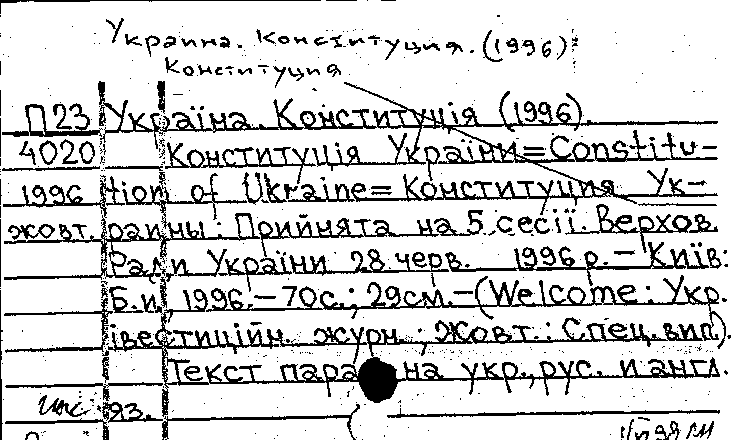 Украина. Конституция. (1996)
Конституция
П23 Україна. Конституція (1996).
4020 Конституція України=Constitu-
1996 tion of Ukraine=Конституция Ук-
жовт. раины: Прийнята на 5 сесії. Верхов.
Ради України 28 черв. 1996 р.— Київ:
Б.и, 1996.—70с.; 29см.—(Welcome: Укр.
івестиційн. журн.; Жовт.: Спец. вип.).
Текст пара на укр., рус. и англ.
93.